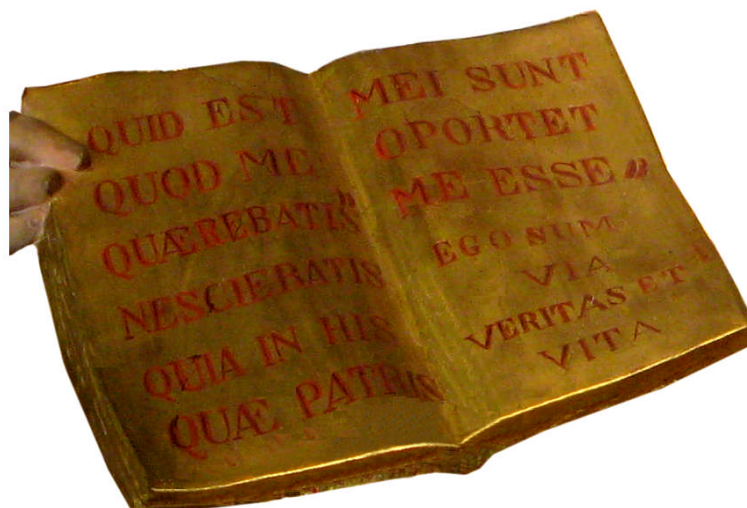 QUID EST
QUOD ME
QUÆREBATIS"
NESCIEBATIS
QUIA IN HIS
QUÆ PATRIS
MEI SUNT
OPORTET
ME ESSE"
EGO SUM
VIA
VERITAS ET
VITA